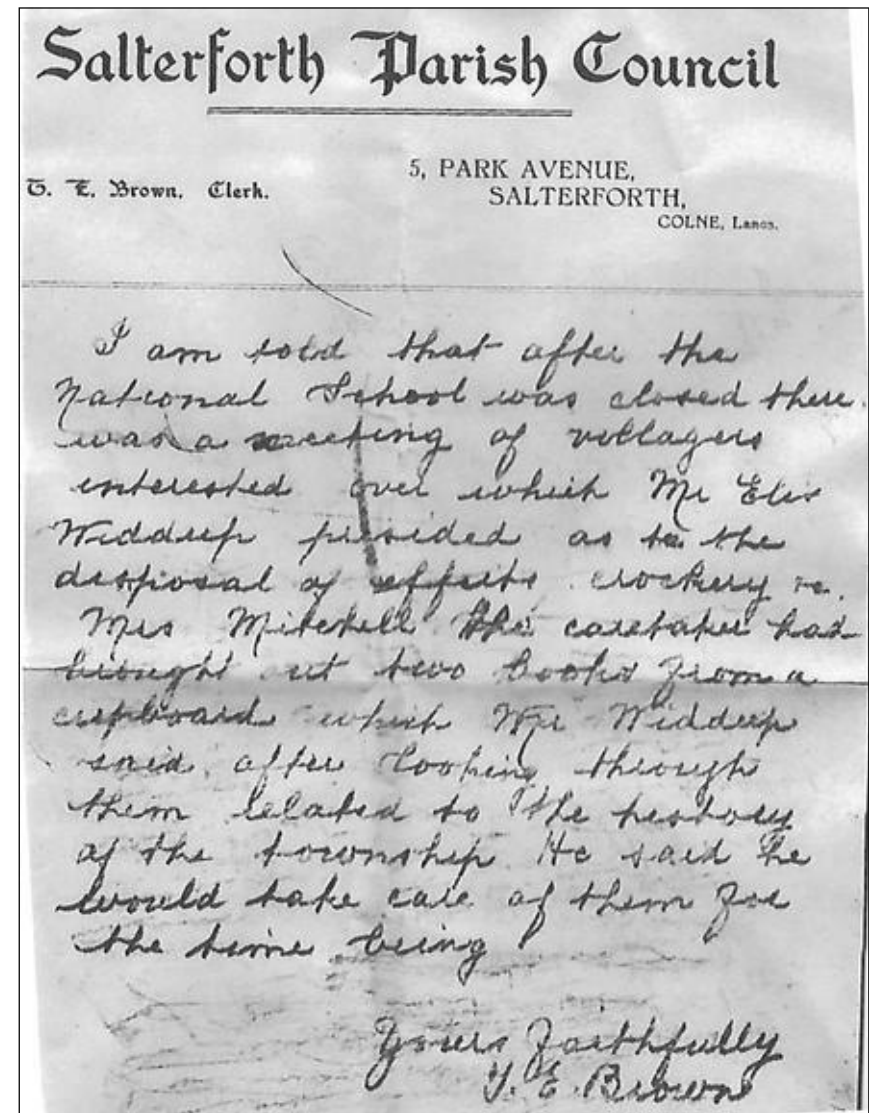 Salterforth Parish Council
T. E. Brown, Clerk.
5, PARK AVENUE,
SALTERFORTH,
COLNE, Lancs.
I am told that after the
National School was closed there
was a meeting of villagers
interested over which Mr
Widdup presided as to the
disposal of effects crockery
Mrs Mitchell the caretaker had
brought out two books from a
cupboard which Mr Widdup
said after looking through
them related to the history
of the township He said he
would take care of them for
the time being
Yours Faithfully
T. E. Brown